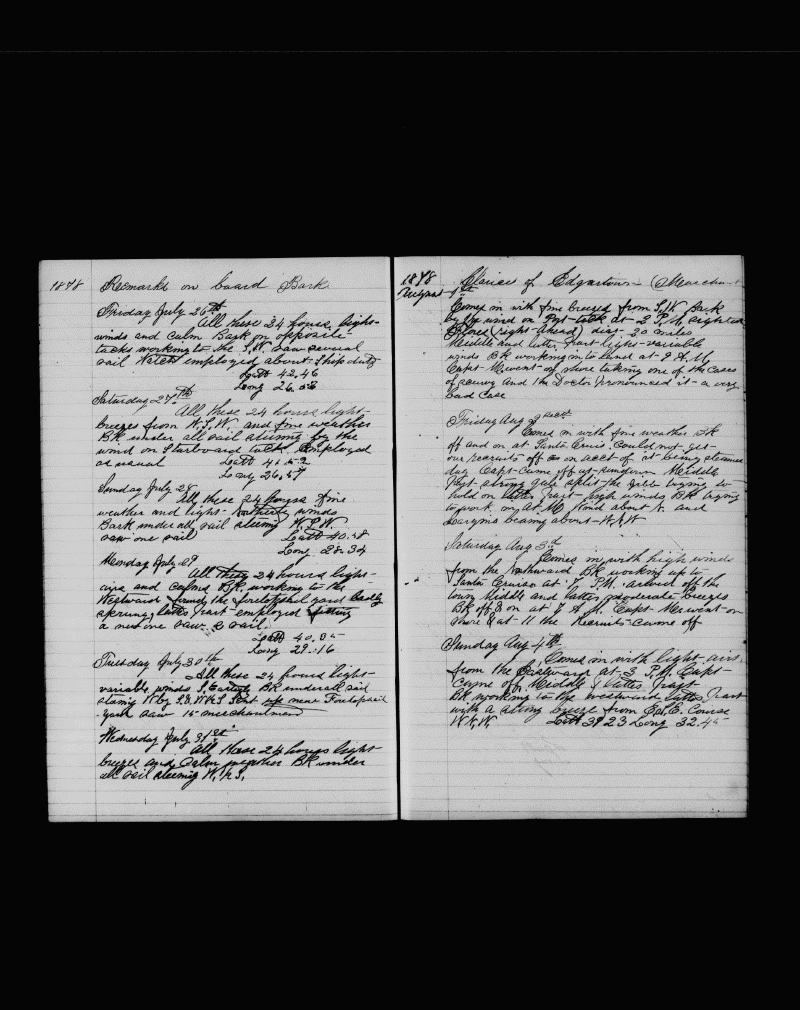 1878 Remarks on board Bark
Friday July 26th
All these 24 hours light
winds and calm Bark on opposite
tacks working to the S.W. saw several
sail Watch employed about Ship duty
Latt 42.46
Long 26.58
Saturday 27th
All these 24 hours light
breezes from W.S.W. and fine weather
Bk under all sail steering by the
wind on Starboard tack Employed
as usual Latt 41.52
Long 26.57
Sunday July 28
All these 24 hours fine
weather and light winds
Bark under all sail steering W.S.W.
saw one sail Latt 40.58
Long 28.34
Monday July 29
All these 24 hours light
airs and calms Bk. working to the
Westward found the foretopsail yard badly
sprung latter part employed fitting
a new one saw a sail.
Latt 40.05
Long 29.16
Tuesday July 30th
All these 24 hours light
variable winds Bk under all sail
steering W by S & W.S.W Sent up new Foretopsail
yard saw 15 merchantmen
Wednesday July 31st
All these 24 hours light
breezes and Calm weather Bk under
all sail steering W.
1878 of Edgartown (
August 1st
Comes in with fine breezes from S.W. Bark
by the wind on Port tack at 2 P.M. sighted
(right ahead) dist 30 miles
Middle and latter part light variable
winds Bk working in to land at 9 A.M.
Capt went on shore taking one of the cases
of scurvy and the Doctor pronounced it a very
bad case
Friday Aug 2
Comes in with fine weather Bk
off and on at Santa Cruis could not get
our recruits off on acct of it being
day Capt came off at sundown Middle
part strong gale split the jibb trying to
hold on latter part high winds Bk trying
to work in At M about N. and
bearing about W
Saturday Aug 3d
Comes in with high winds
from the Northward Bk working up to
Santa Cruise at 7 P.M. arived off the
town Middle and latter moderate breezes
Bk off & on at 7 A.M. Capt went on
shore & at 11 the Recruits came off
Sunday Aug 4th
Comes in with light airs
from the Eastward at 3 P.M. Capt
came off Middle & latter part
Bk working to the westward latter part
with a strong breeze from Course
W. Latt 39 23 Long 32.45